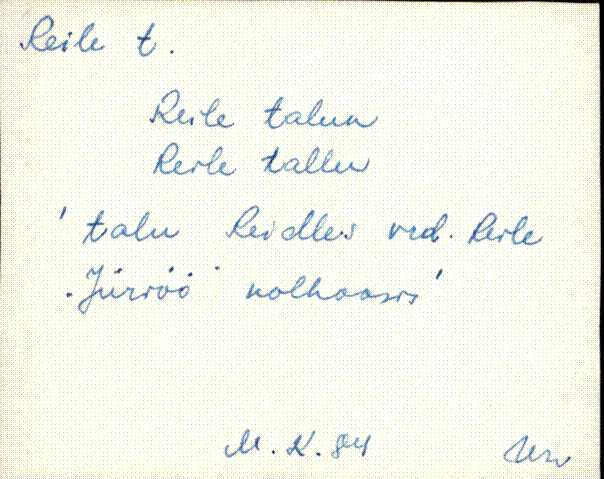 Reile t.
Reile talun
Reile tallu
' talu Reidlles vrd. Reile
"Jüriöö" kolhoosis'
M. K. 84